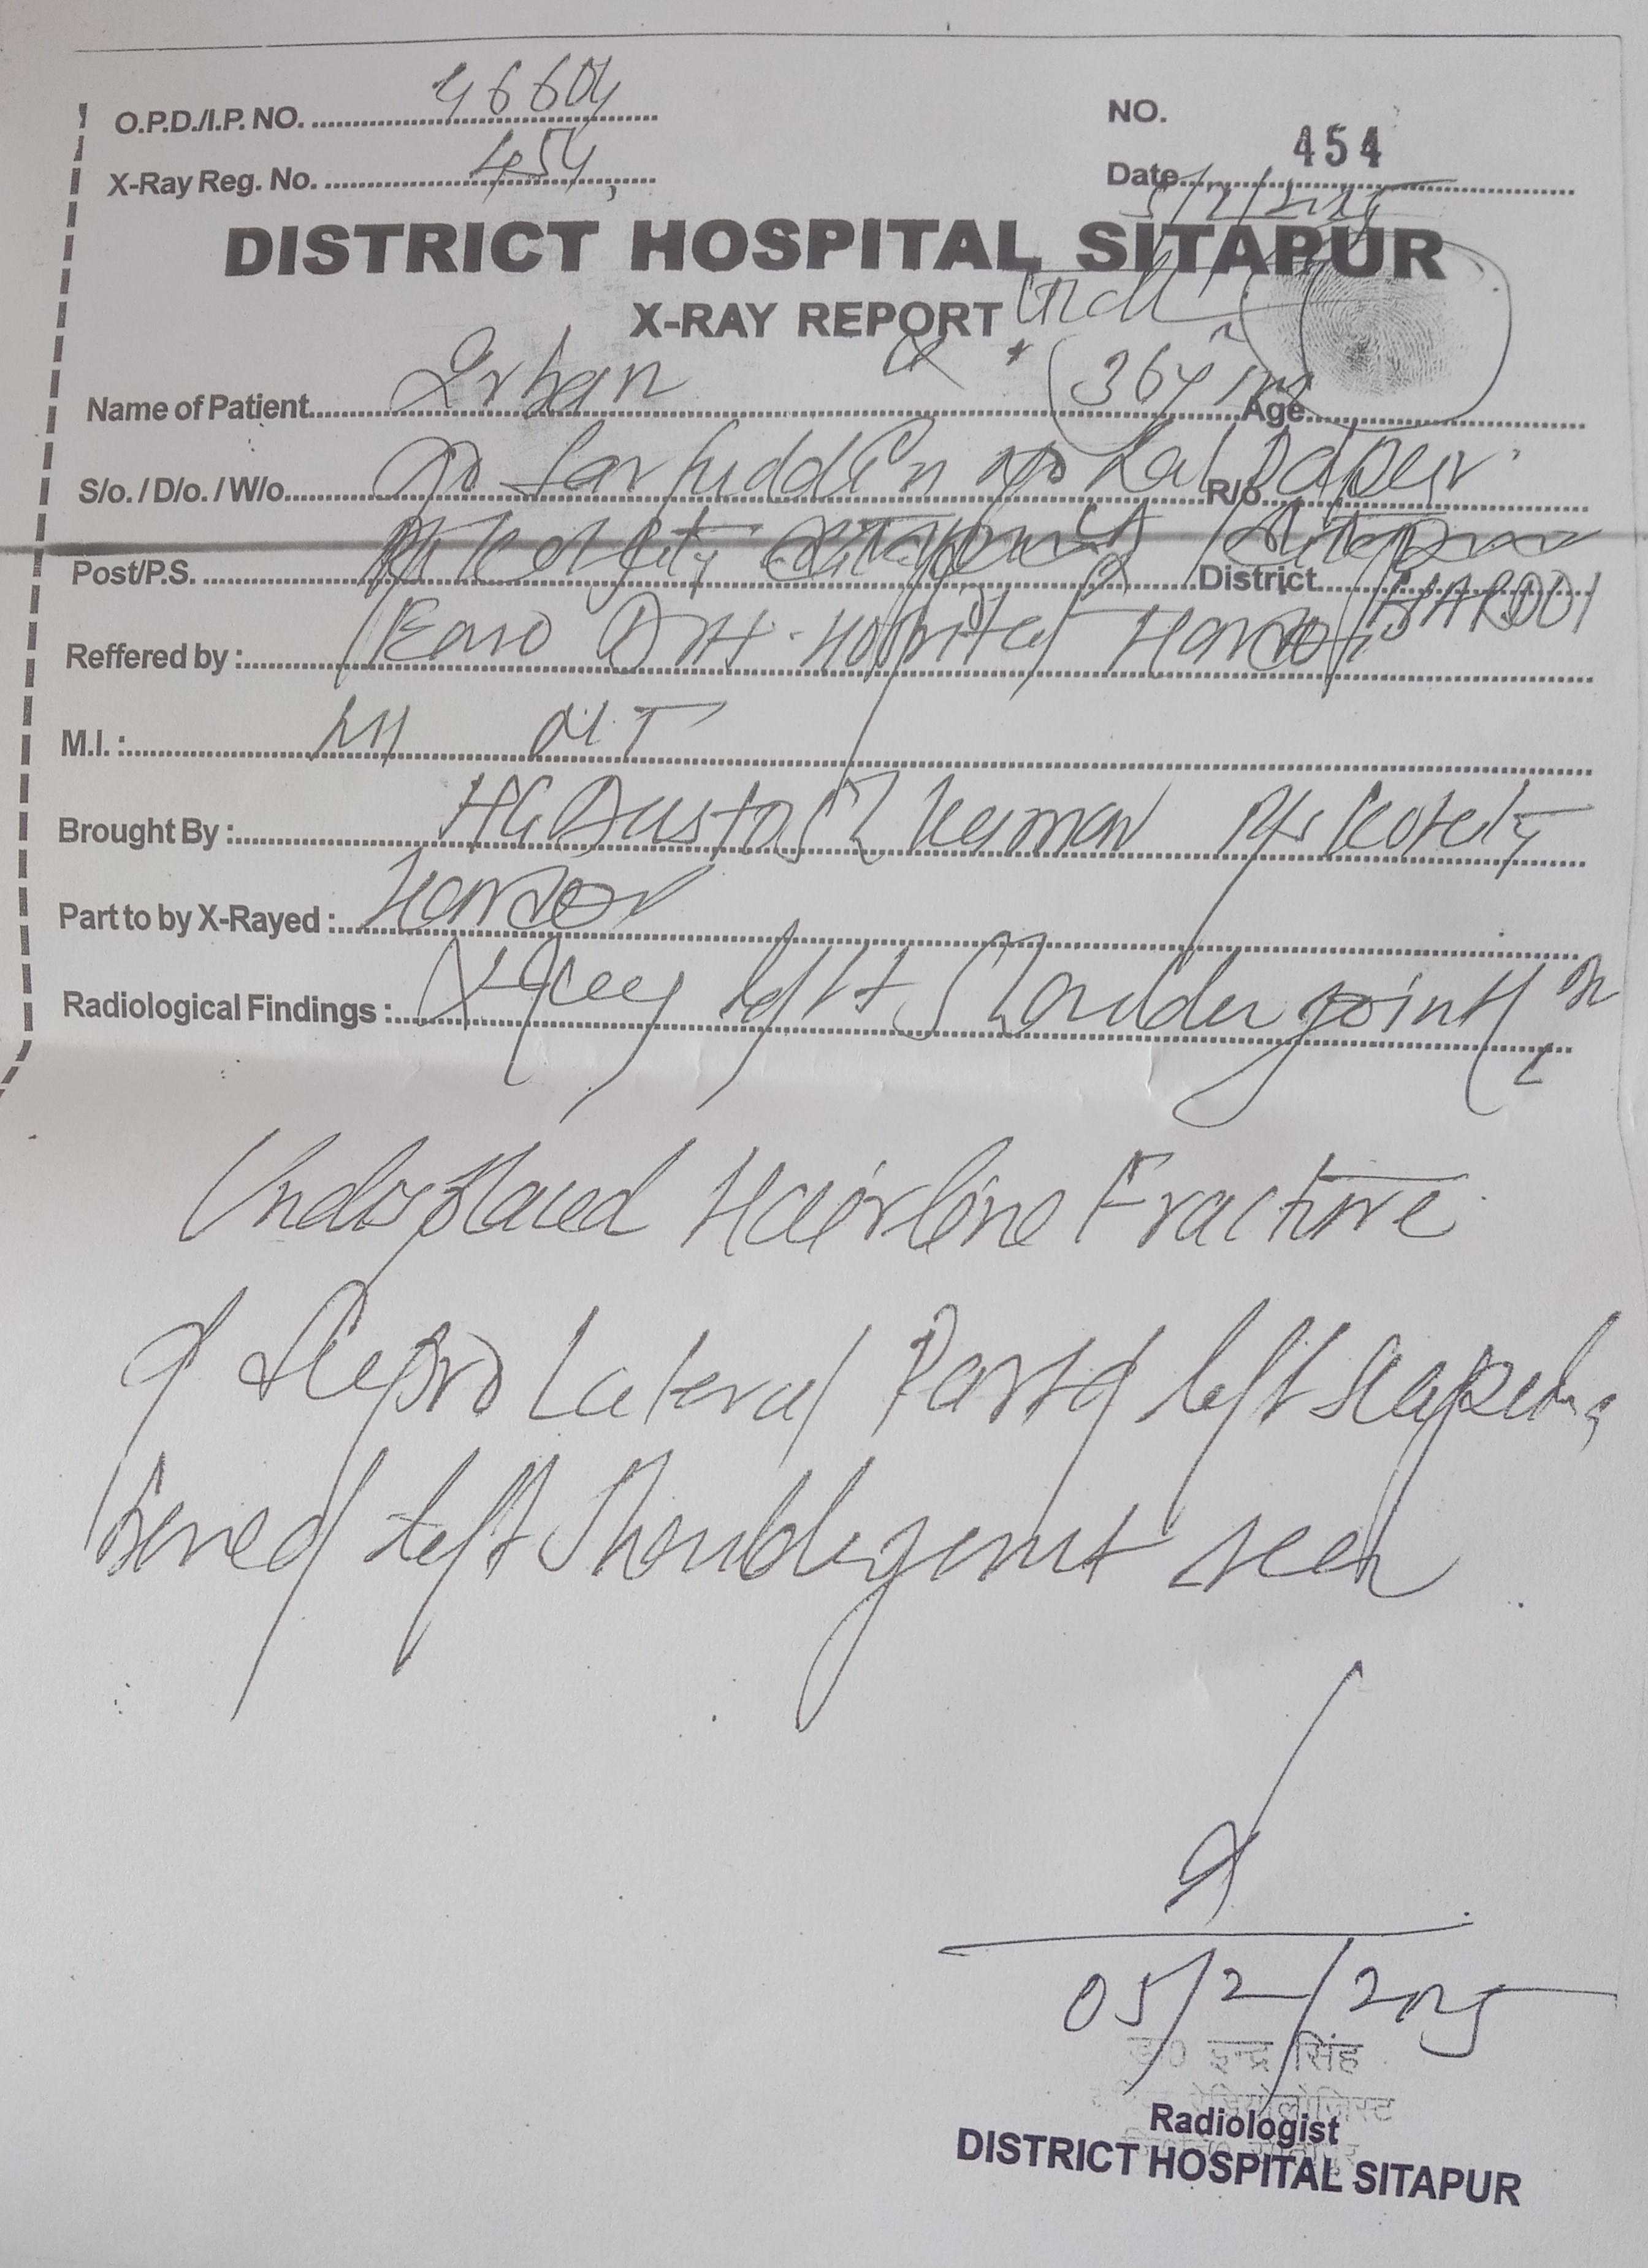 O.P.D./I.P. NO. 46604
NO.
X-Ray Reg. No. 454
454
Date 5/2/2025
DISTRICT HOSPITAL SITAPUR
X-RAY REPORT
Name of Patient Irfan 36y Age
S/o. / D/o. / W/o. S/o Sarfuddin R/o Lal R/o
Post/P.S. District
Reffered by : EMO Distt. Hospital Hardoi HARDOI
M.I. :
Brought By : HG Kumar P/s Kotwali
Part to by X-Rayed : Hardoi
Radiological Findings : X-Ray left Shoulder joint
Undisplaced Hairline Fracture
of Lateral Part of left Scapula
bone of left Shoulder joint seen
05/2/2025
डा0 इन्द्र सिंह
रेडियोलोजिस्ट
Radiologist
DISTRICT HOSPITAL SITAPUR